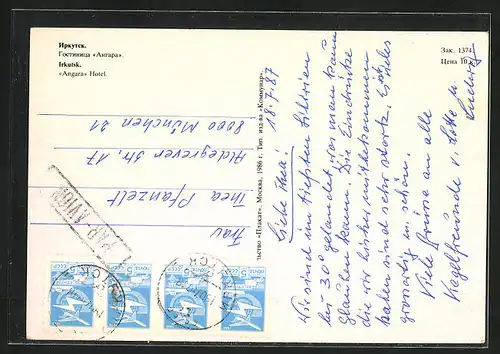 Иркутск.
Гостиница «Ангара».
Irkutsk.
«Angara» Hotel.
Зак. 1374.
Цена 10 к.
18.7.87
Liebe Thea!
Wir sind im tiefsten Sibirien
bei 30° gelandet, was man kaum
glauben kann. Die Eindrücke
die wir bisher mitbekommen
haben sind sehr stark. Vieles
großartig u. schön.
Viele Grüsse an alle
Kegelfreunde v. Lotte u.
Ludwig
Frau
Thea Pfanzelt
Aldegrever Str. 17
8000 München 21
PAR AVION
льство «Плакат». Москва, 1986 г. Тип. изд-ва «Коммунар».
ПОЧТА СССР 5
ПОЧТА СССР 5
ПОЧТА СССР 5
ПОЧТА СССР 5